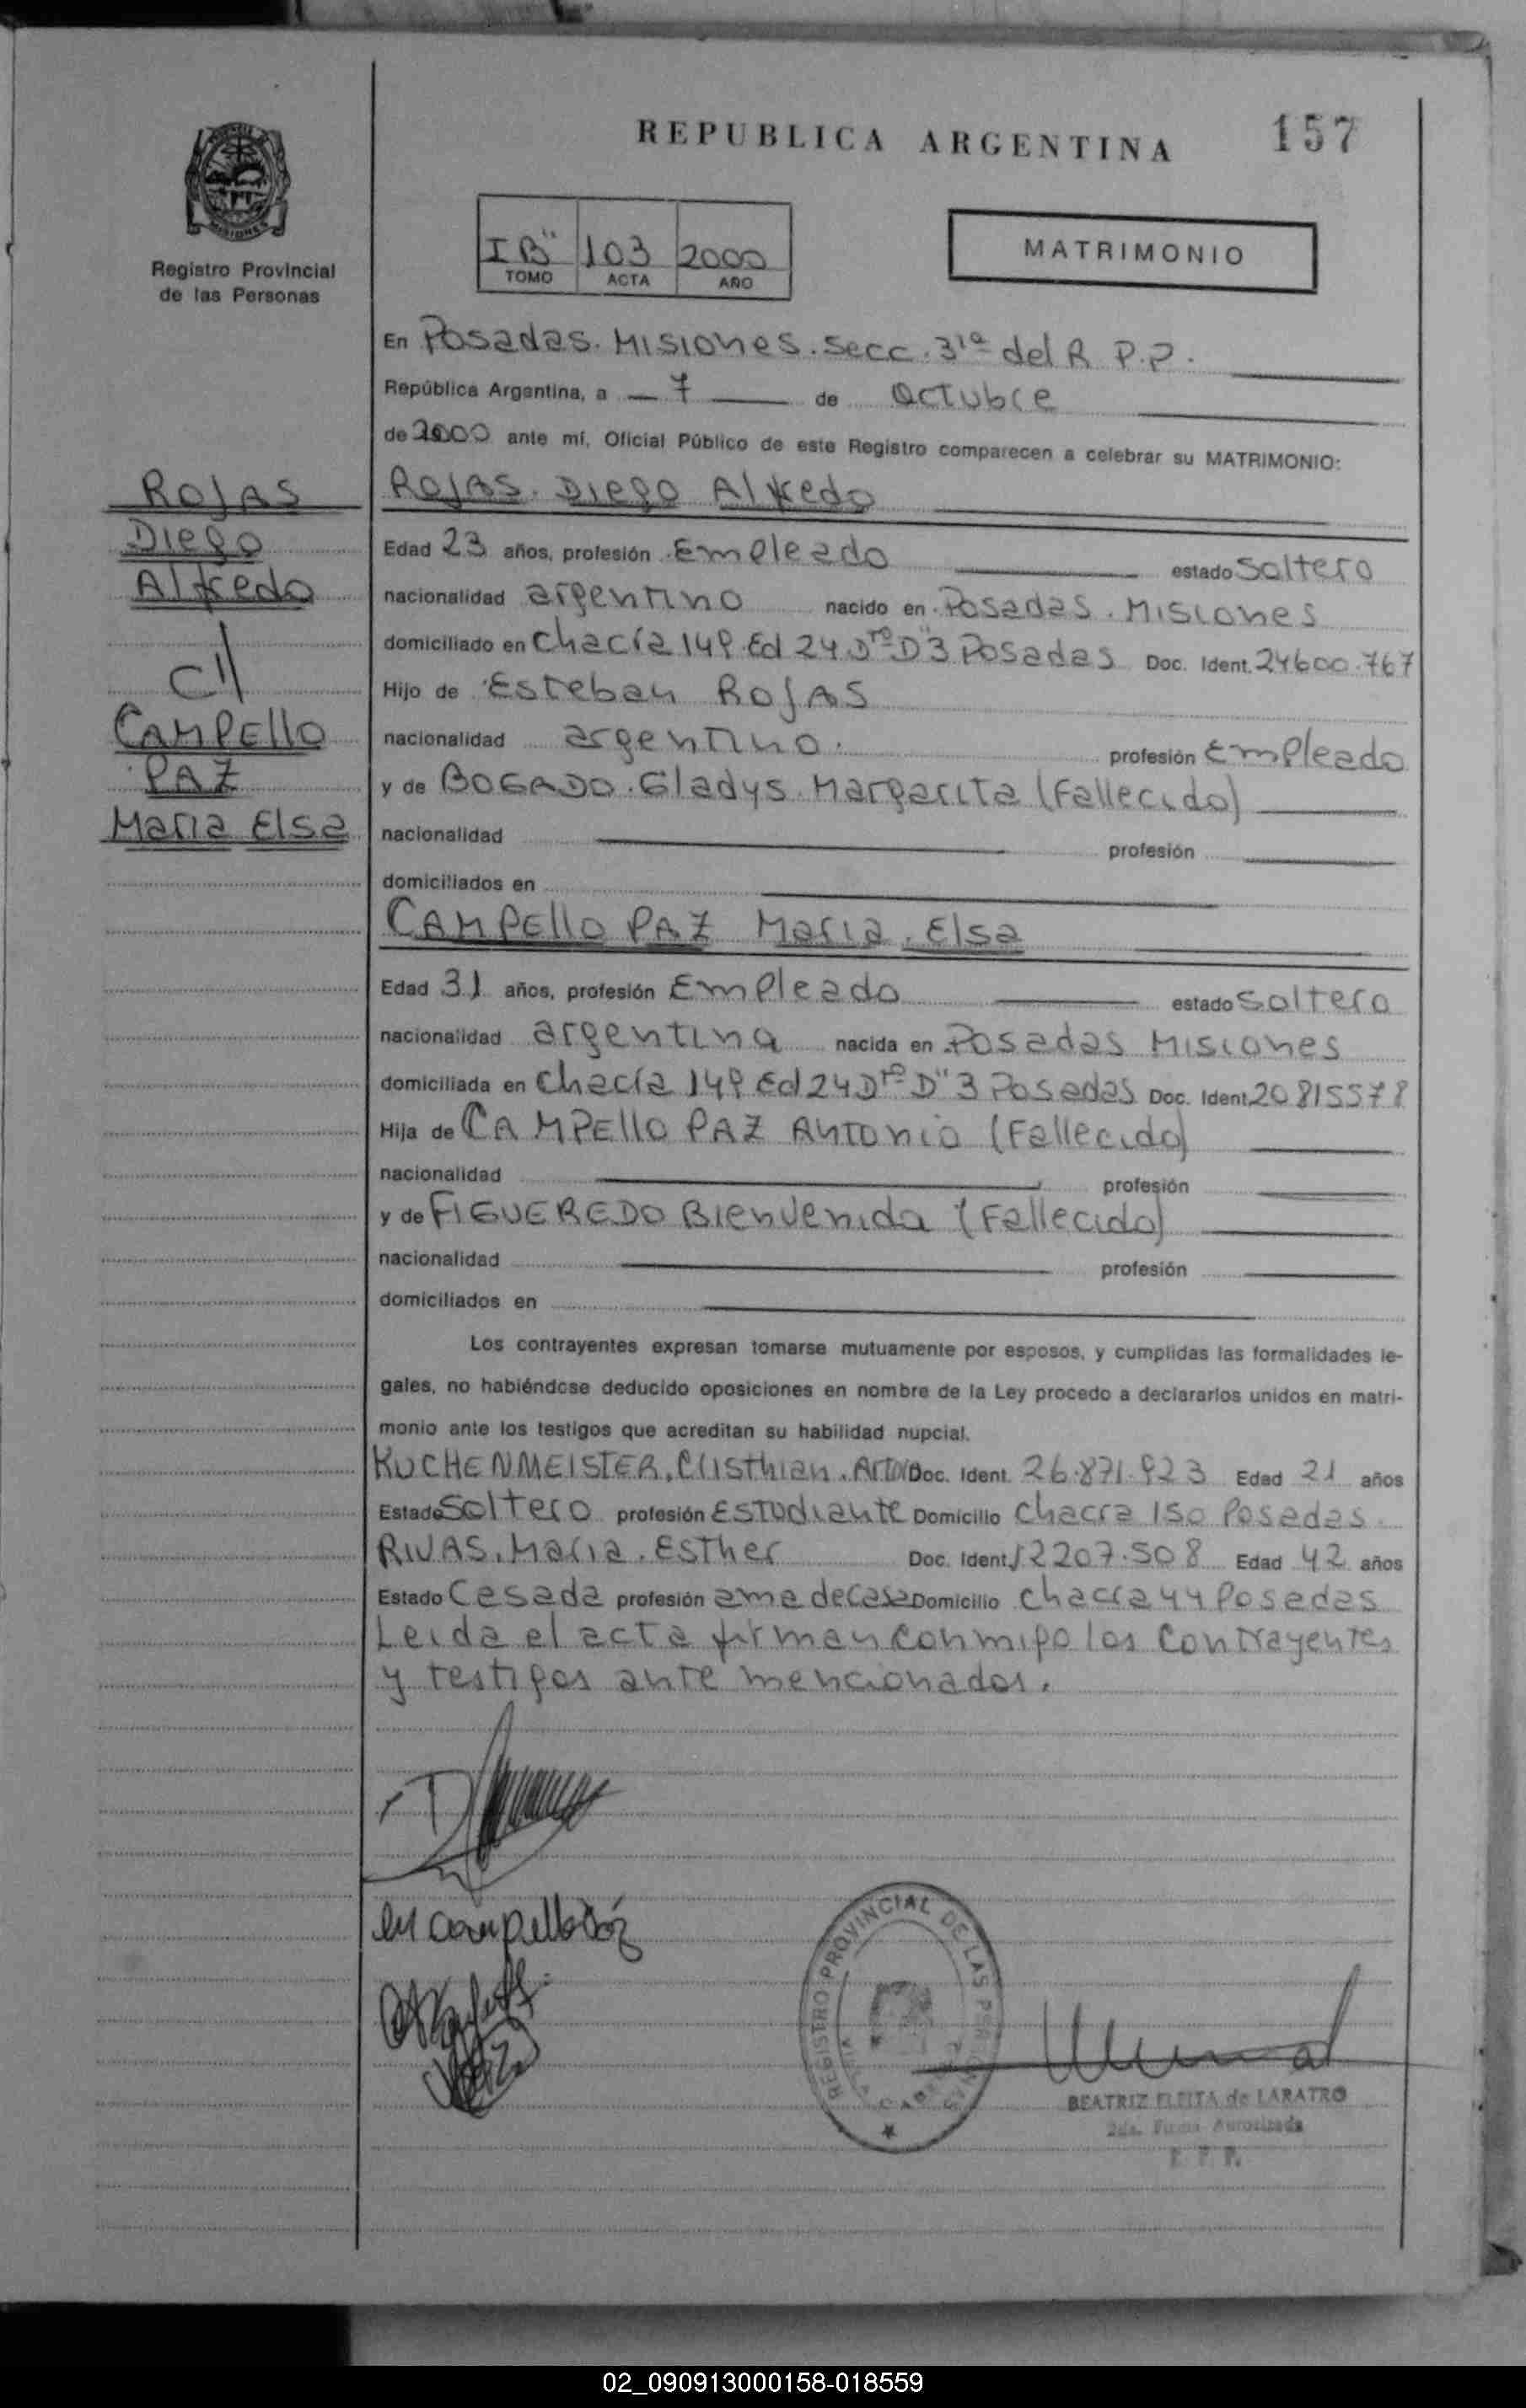 REPUBLICA ARGENTINA
157
Registro Provincial
de las Personas
I B" 103 2000
TOMO ACTA AÑO
MATRIMONIO
En Posadas. Misiones. Secc. 3ra del R P.P.
República Argentina, a 7 de Octubre
de 2000 ante mí, Oficial Público de este Registro comparecen a celebrar su MATRIMONIO:
ROJAS
Diego
Alfredo
c//
CAMPEllo
PAZ
Maria Elsa
ROJAS. Diego Alfredo
Edad 23 años, profesión Empleado estado Soltero
nacionalidad argentino nacido en Posadas. Misiones
domiciliado en Chacra 149. Ed 24 Dto D"3 Posadas Doc. Ident. 24600.767
Hijo de Esteban ROJAS
nacionalidad argentino. profesión Empleado
y de BOGADO. Gladys. Margarita (Fallecido)
nacionalidad profesión
domiciliados en
CAMPEllo PAZ Maria. Elsa
Edad 31 años, profesión Empleado estado Soltero
nacionalidad argentina nacida en Posadas Misiones
domiciliada en Chacra 149 Ed 24 Dto D" 3 Posadas Doc. Ident. 20815578
Hija de CAMPEllo PAZ Antonio (Fallecido)
nacionalidad profesión
y de FIGUEREDO Bienvenida (Fallecido)
nacionalidad profesión
domiciliados en
Los contrayentes expresan tomarse mutuamente por esposos, y cumplidas las formalidades le-
gales, no habiéndose deducido oposiciones en nombre de la Ley procedo a declararlos unidos en matri-
monio ante los testigos que acreditan su habilidad nupcial.
KUCHENMEISTER, Cristhian. Doc. Ident. 26.871.923 Edad 21 años
Estado Soltero profesión ESTUdiante Domicilio Chacra 150 Posadas.
RIVAS, Maria. Esther Doc. Ident. 12207.508 Edad 42 años
Estado Casada profesión ama de Casa Domicilio chacra 44 Posadas
Leida el acta firman conmigo los Contrayentes
y testigos ante mencionados.
REGISTRO PROVINCIAL DE LAS PERSONAS
BEATRIZ FLEITA de LARATRO
2da. Firma Autorizada
02_090913000158-018559